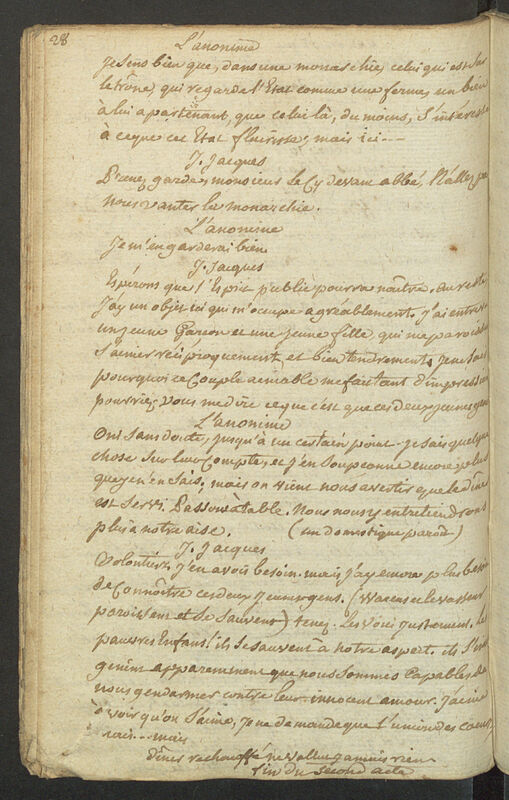 28
L'anonime
je sens bien que, dans une monarchie, celui qui est sur
le trône, qui regarde l'Etat comme une ferme, un bien
à lui apartenant, que celui là, du moins, s'intéresse
à ceque cet Etat fleurisse; mais ici ---
J. Jacques
Prenez garde, monsieur le Cy devant abbé, N'allez pas
nous vanter la monarchie.
L'anonime
Je m'en garderai bien
J. Jacques
Espérons que l'Esprit public pourra naître. au reste
J'ay un objet ici qui m'occupe agréablement. j'ai entrevu
un jeune Garcon et une jeune fille, qui me paroissent
s'aimer réciproquement, et bien tendrement. Je ne sais
pourquoi ce Couple aimable me fait tant d'impression
pourriez vous me dire ceque c'est que ces deux jeunes gens
L'anonime
Oui sans doute, jusqu'à un certain point. je sais quelque
chose sur leur Compte, et j'en soupconne encore plus
que je n'en sais; mais on vient nous avertir que le dîné
est servi. Passons à table. Nous nous y entretiendrons
plus à notre aise. (un domestique paroit)
J. Jacques
Volontiers, j'en avois besoin. mais j'ay encore plus besoin
de Connoître ces deux jeunes gens. ( et le
paroissent et se sauvent) tenez. Les voici justement. Les
pauvres Enfans! ils se sauvent à notre aspect. ils s'ima
ginent apparemment que nous sommes capables de
nous gendarmer contre leur innocent amour. j'aime
à voir qu'on s'aime, je ne demande que l'union des coeurs,
mais... mais
dînés rechauffé ne vallut jamais rien
fin du second acte